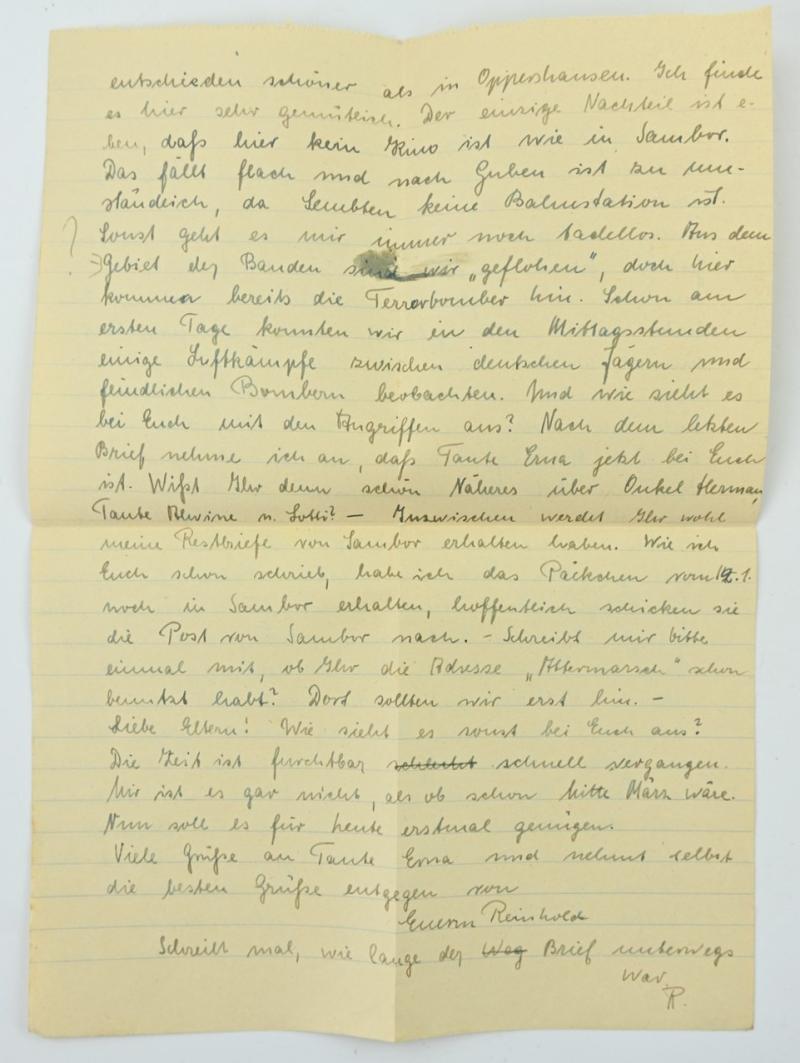 entschieden schöner als in Oppershausen. Ich finde
es hier sehr gemütlich. Der einzige Nachteil ist e-
ben, daß hier kein Kino ist wie in Sambor.
Das fällt flach und nach Guben ist zu um-
ständlich, da Lembten keine Bahnstation ist.
? Sonst geht es mir immer noch tadellos. Aus dem
Gebiet der Banden sind wir „geflohen", doch hier
kommen bereits die Terrorbomber hin. Schon am
ersten Tage konnten wir in den Mittagsstunden
einige Luftkämpfe zwischen deutschen Jägern und
feindlichen Bombern beobachten. Und wie sieht es
bei Euch mit den Angriffen aus? Nach dem letzten
Brief nehme ich an, daß Tante Erna jetzt bei Euch
ist. Wißt Ihr denn schon Näheres über Onkel Herman,
Tante Alwine u. Lotti? – Inzwischen werdet Ihr wohl
meine Restbriefe von Sambor erhalten haben. Wie ich
Euch schon schrieb, habe ich das Päckchen vom 12.1.
noch in Sambor erhalten, hoffentlich schicken sie
die Post von Sambor nach. – Schreibt mir bitte
einmal mit, ob Ihr die Adresse „Attermarsch" schon
benutzt habt? Dort sollten wir erst hin. –
Liebe Eltern! Wie sieht es sonst bei Euch aus?
Die Zeit ist furchtbar schlecht schnell vergangen.
Mir ist es gar nicht, als ob schon Mitte März wäre.
Nun soll es für heute erstmal genügen.
Viele Grüße an Tante Erna und nehmt selbst
die besten Grüße entgegen von
Euerm Reinhold
Schreibt mal, wie lange der Weg Brief unterwegs
war.
R.